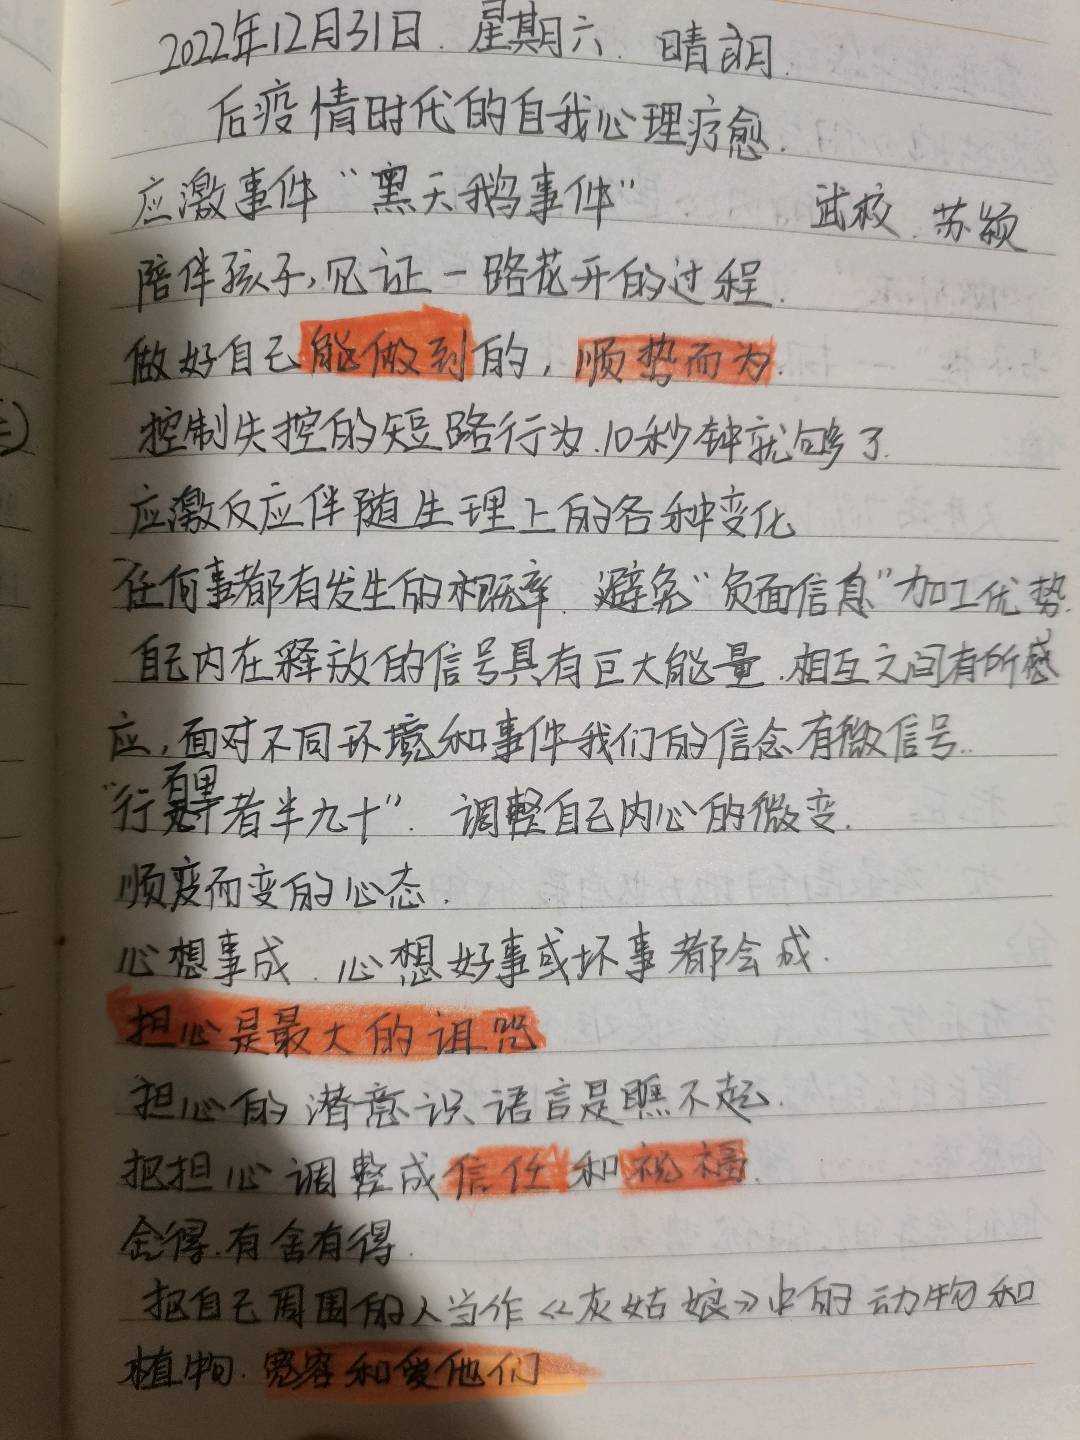 2022年12月31日. 星期六. 晴朗.
后疫情时代的自我心理疗愈.
应激事件“黑天鹅事件” 武校. 苏颖
陪伴孩子,见证一路花开的过程.
做好自己能做到的,顺势而为
控制失控的短路行为.10秒钟就够了.
应激反应伴随生理上的各种变化
任何事都有发生的概率.避免“负面信息”加工优势.
自己内在释放的信号具有巨大能量.相互之间有所感
应,面对不同环境和事件我们的信念有微信号..
“行百里者半九十”. 调整自己内心的微变.
顺变而变的心态.
心想事成.心想好事或坏事都会成.
担心是最大的诅咒
担心的潜意识语言是瞧不起.
把担心调整成信任和祝福.
舍得.有舍有得.
把自己周围的人当作《灰姑娘》中的动物和
植物.宽容和爱他们